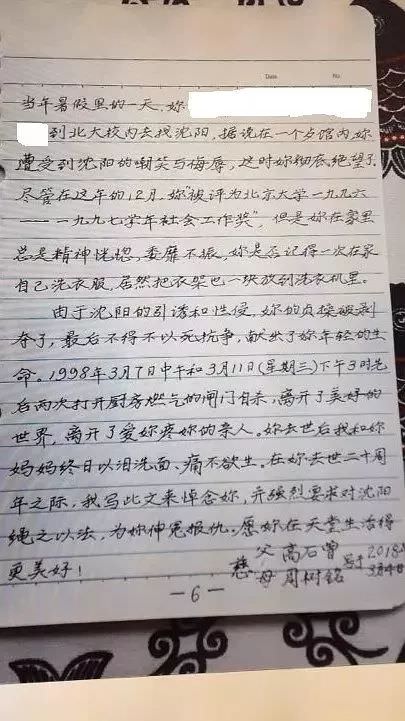 Date No
当年暑假里的一天，妳
到北大校内去找沈阳，据说在一个宾馆内妳
遭受到沈阳的嘲笑与侮辱，这时妳彻底绝望了。
尽管在这年的12月，妳“被评为北京大学一九九六
——一九九七学年社会工作奖”，但是妳在家里
总是精神恍惚，委靡不振，妳是否记得一次在家
自己洗衣服，居然把衣架也一块放到洗衣机里。
由于沈阳的引诱和性侵，妳的贞操被剥
夺了，最后不得不以死抗争，献出了妳年轻的生
命。1998年3月7日中午和3月11日(星期三)下午3时先
后两次打开厨房燃气的闸门自杀，离开了美好的
世界，离开了爱妳疼妳的亲人。妳去世后我和妳
妈妈终日以泪洗面、痛不欲生。在妳去世二十周
年之际，我写此文来悼念妳，并强烈要求对沈阳
绳之以法，为妳伸冤报仇。愿妳在天堂生活得
更美好！
慈 父 高石曾 写于2018年
母 周树铭
—6—